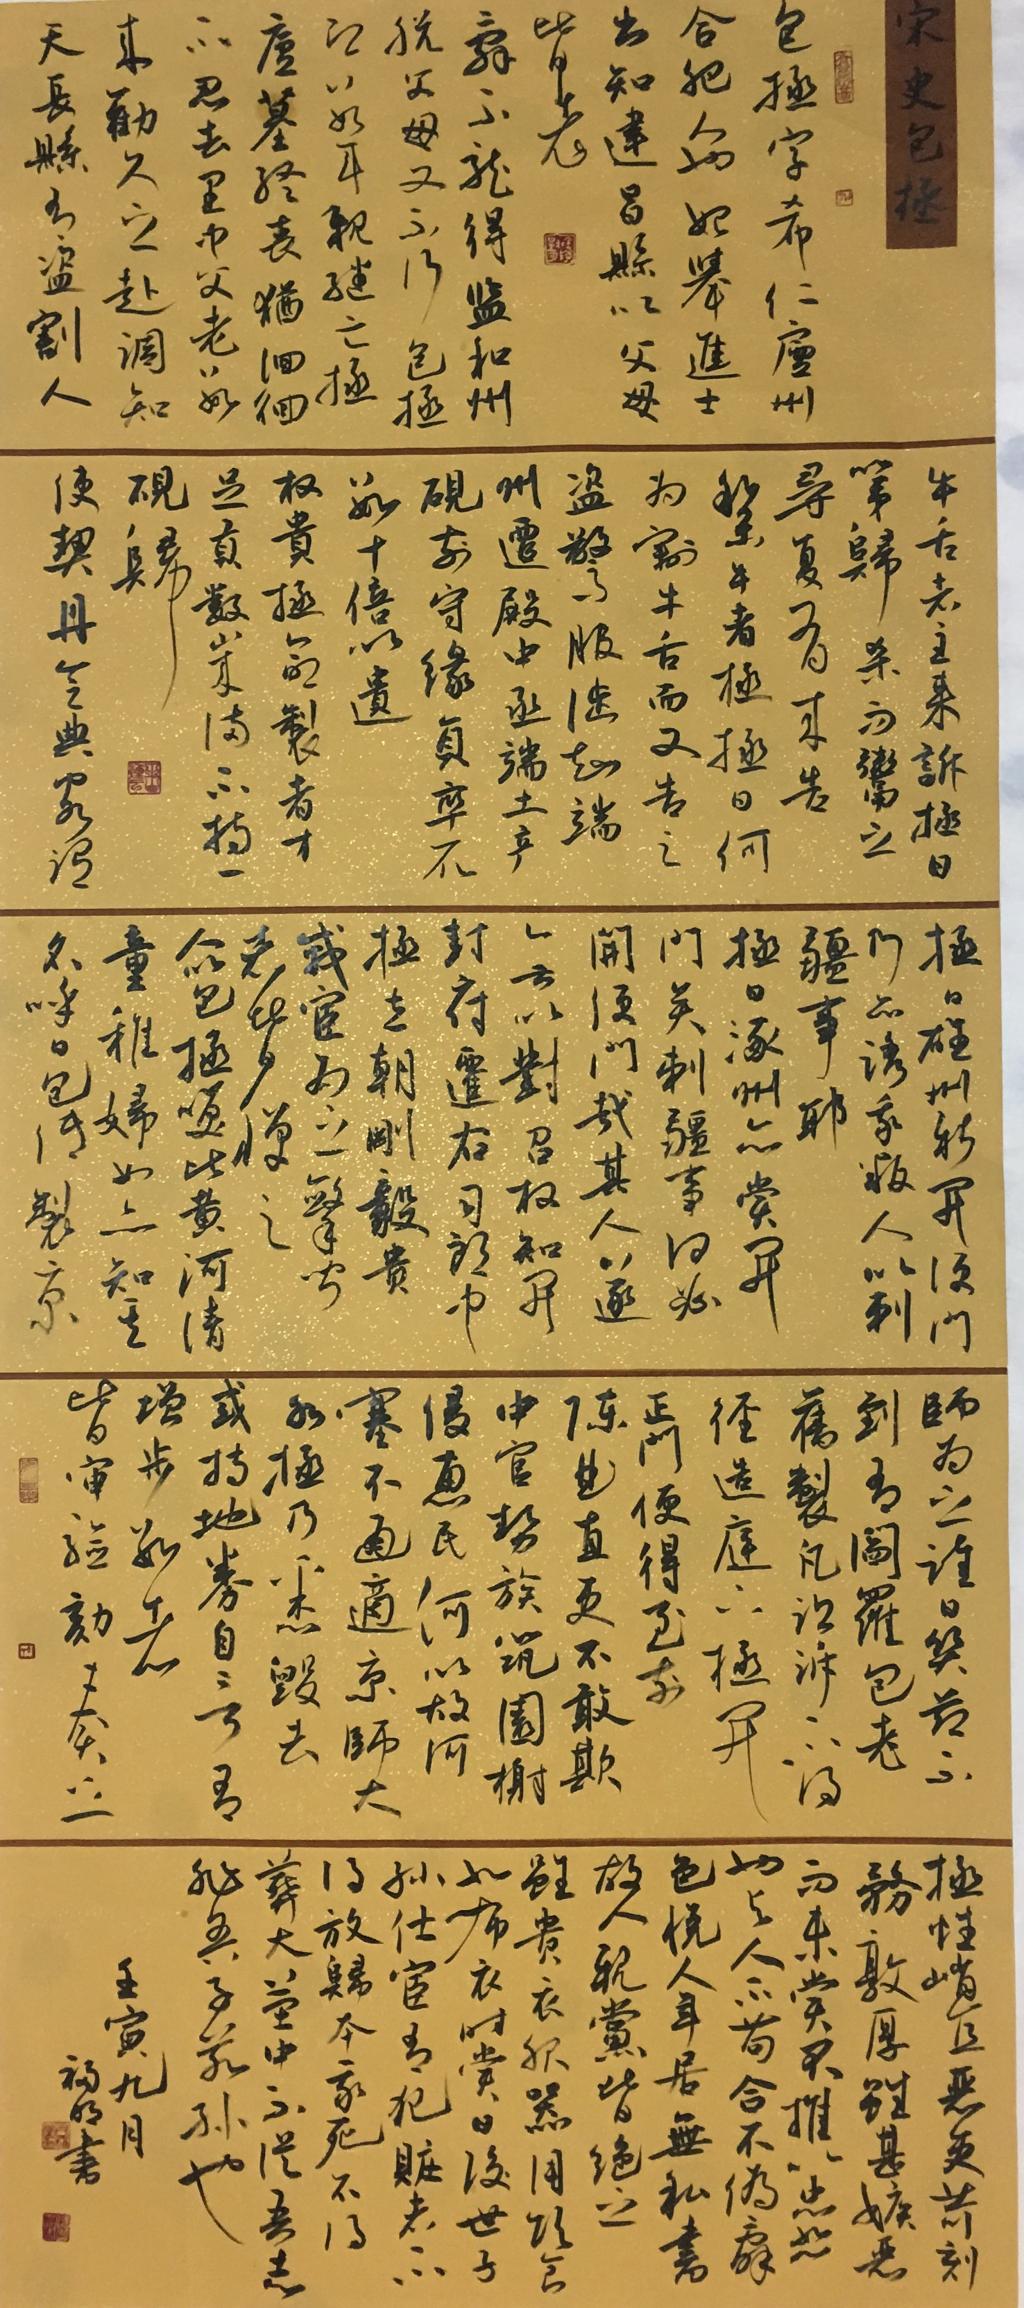 宋史包拯
包拯字希仁廬州
合肥人也始舉進士
出知建昌縣以父母
皆老
辭不就得監和州
稅父母又不行包拯
即 耳親繼亡拯
廬墓終喪猶徊徊
不忍去里中父老數
來勸久之赴調知
天長縣有盜割人
牛舌者主來訴拯曰
第歸 殺而鬻之
尋夏有來告
私 牛者拯拯曰何
為割牛舌而又告之
盜驚 服 端
州遷殿中丞端土产
硯前守緣貢率取
數十倍以遺
权貴拯命製者才
足貢數歲滿不持一
硯歸
使契丹令典客謂
拯曰雄州新開便門
乃 誘我叛人以刺
疆事耶
拯曰涿州亦嘗開
門矣刺疆事何必
開便門哉其人 遂
無以對召权知開
封府遷右司郎中
拯立朝剛毅貴
戚宦 之 手聞
者皆憚之
人包拯 比黄河清
童稚婦女亦知其
名呼曰包待製京
師為之 曰 節不
到有閻羅包老
舊製凡訟訴不得
徑造庭下拯開
正門使得至前
陳曲直吏不敢欺
中官勢族筑園榭
侵惠民河以故河
塞不通適京師大
水拯乃悉毀去
或持地券自言有
增步數者
皆审验劾奏之
拯性峭直惡吏苛刻
務敦厚雖甚嫉惡
而未嘗不推 忠恕
也与人不苟合不偽辭
色悅人 居無私書
故人親黨皆絕之
雖贵衣服器用飲食
如布衣时嘗曰後世子
孙仕宦有犯贓者不
得放歸本家死不得
葬大茔中不從吾志
非吾子若孙也
壬寅九月
福明書